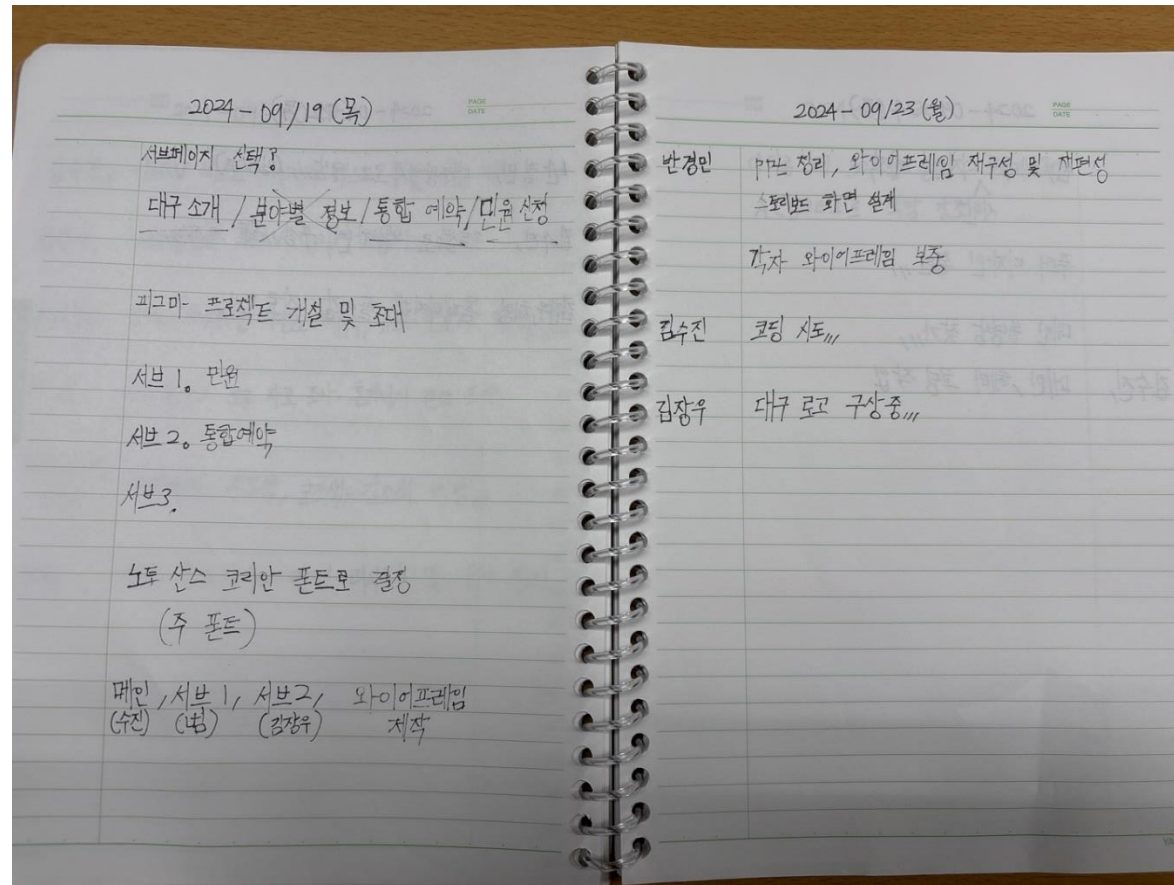 2024-09/19 (목)
PAGE
DATE
서브페이지 선택?
대구 소개 / 분야별 정보 / 통합 예약 / 민원 신청
피그마- 프로젝트 개설 및 초대
서브 1. 민원
서브 2. 통합예약
서브3.
노투 산스 코리안 폰트로 결정
(주 폰트)
메인, 서브 1, 서브2, 와이어프레임
(수진) (김장우) 제작
2024-09/23 (월)
PAGE
DATE
반경민 정리, 와이어프레임 재구성 및 재편성
스토리보드 화면 설계
각자 와이어프레임 보충
김수진 코딩 시도,,,
김장우 대구 로고 구상중,,,